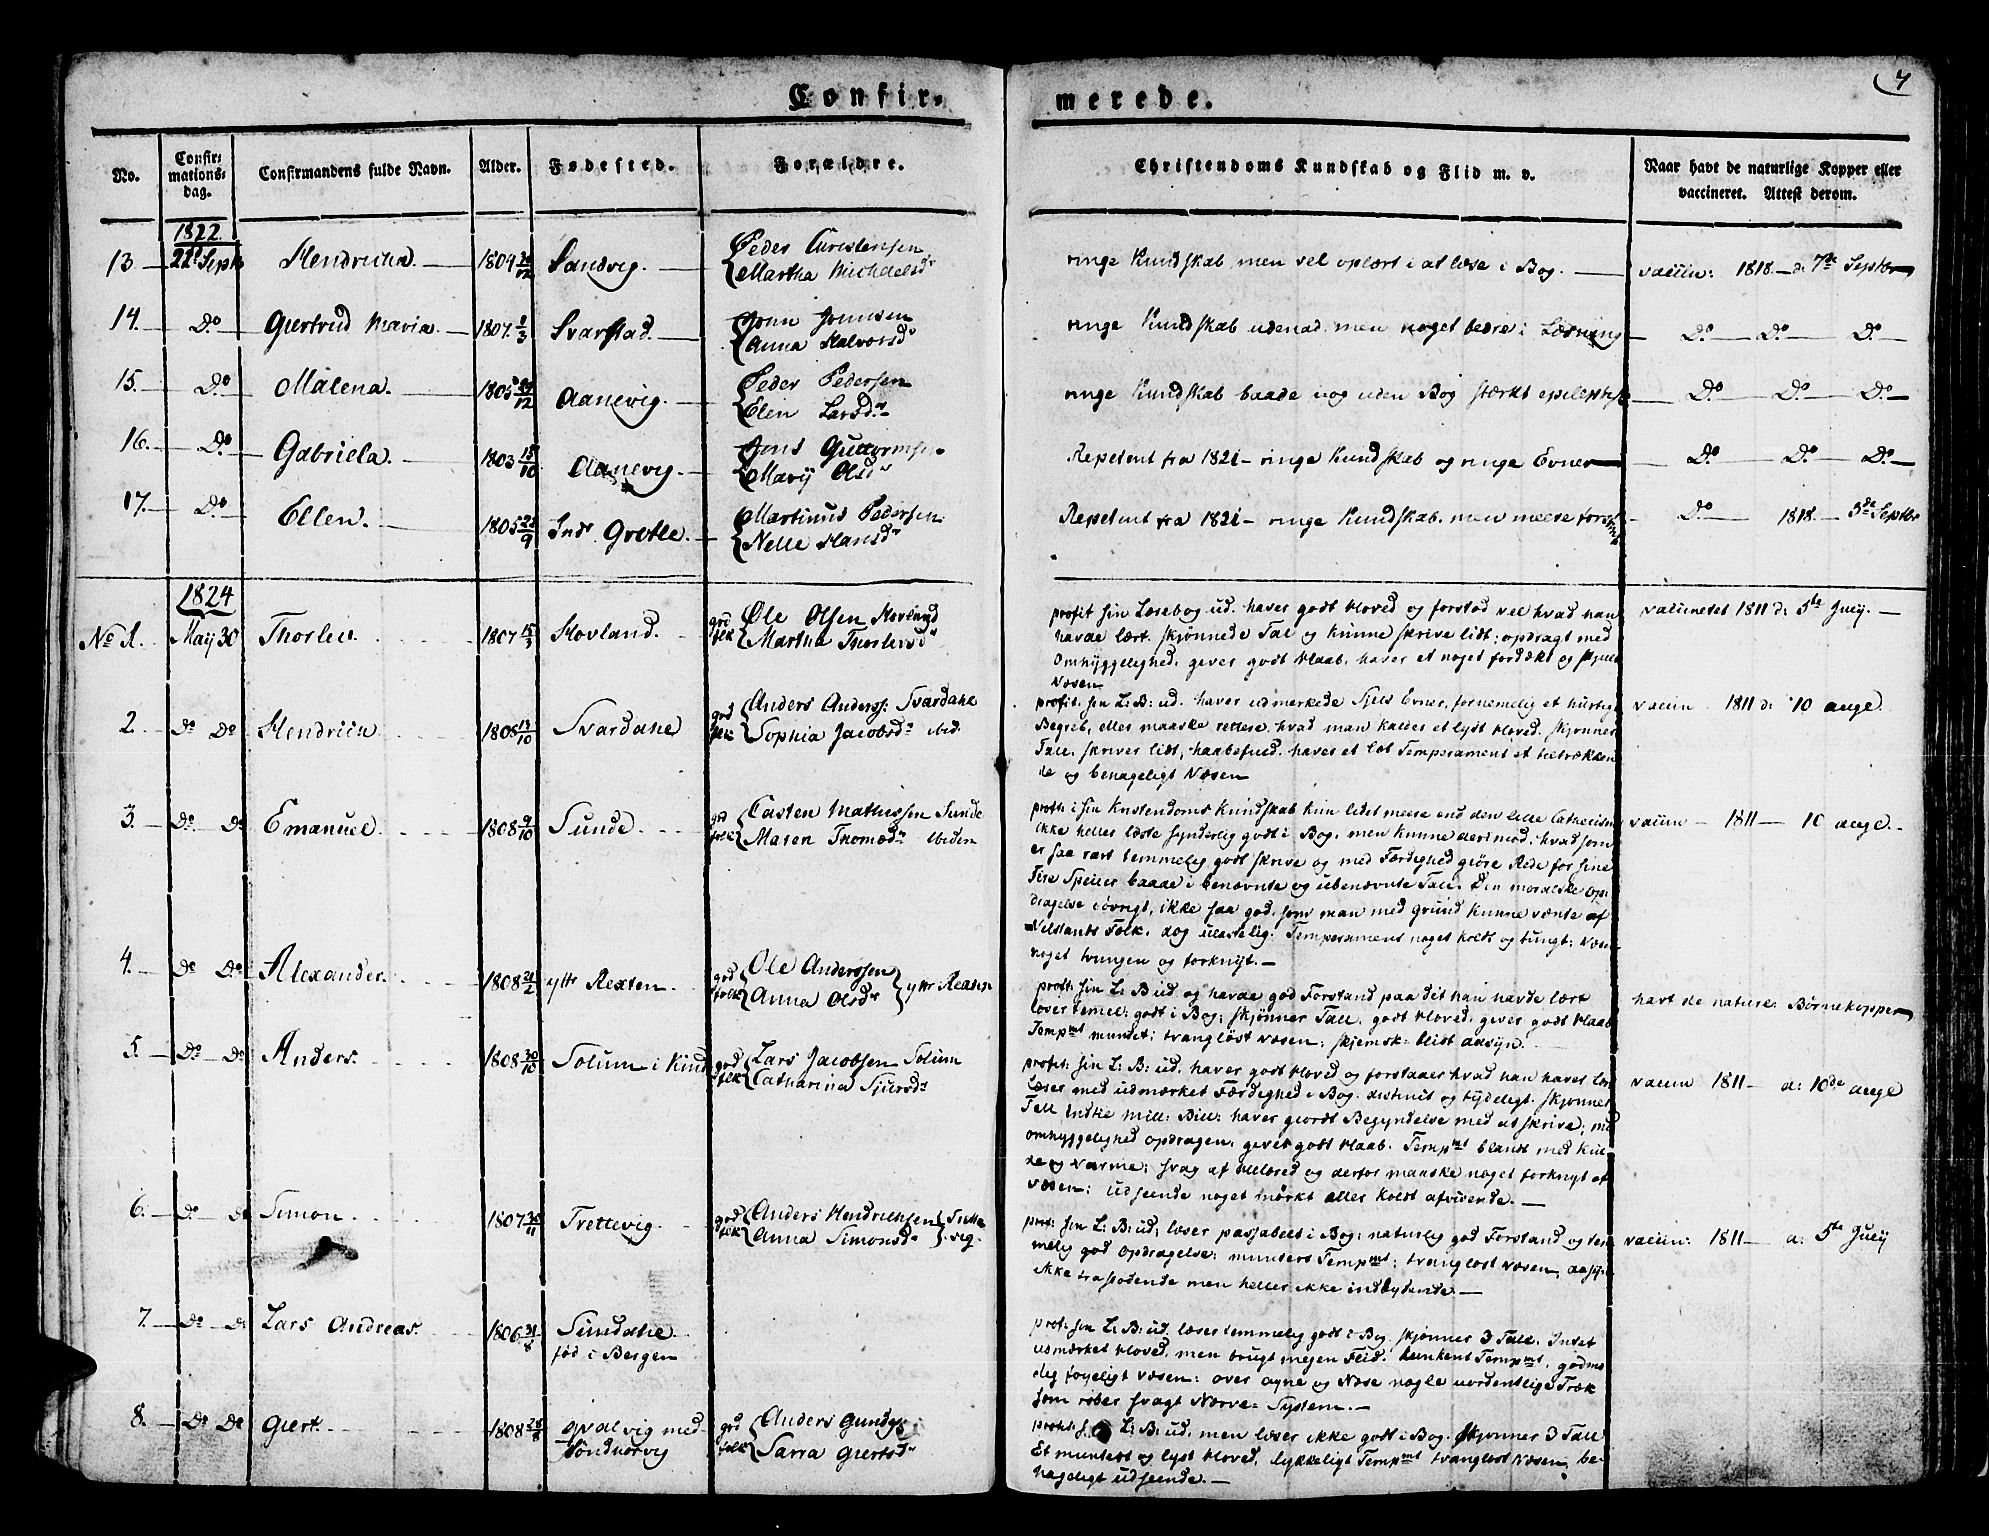 7
Confir- merede.
No. Confirmations-dag. Confirmandens fulde Navn. Alder. Fødested. Forældre. Christendoms Kundskab og Flid m. v. Naar havt de naturlige Kopper eller vaccineret. Attest derom.
1822
13 22d Septr Hendricha. 1804 Sandvig. Peder Christensen
Martha Michaelsdr ringe Kundskab men vel oplært i at læse i Bog. vaccin: 1818 d: 7de Septbr
14. Do Giertrud Maria. 1807 1/3 Svarstad. John Johnsen
Anna Halvorsdr ringe Kundskab udenad men noget bedre i Læsning Do Do Do
15. Do Malena. 1805 Aanevig. Peder Pedersen
Elen Larsdr ringe Kundskab baade i og uden Bog stærkt epileptisk Do Do Do
16. Do Gabriela. 1803 15/10 Aanevig Jens Guttormsen
Marij Olsdr Repetent fra 1821 ringe Kundskab og ringe Evner Do Do Do
17. Do Ellen. 1805 Indr Gretle. Martinus Pedersen
Nelle Hansdr Repetent fra 1821 ringe Kundskab, men meere Do 1818 3de Septbr
1824
No 1. Maij 30 Thorlev. 1807 15/3 Hovland. grd folk Ole Olsen Hovland
Martha Thorlevsdr
profit: sin Lærebog ud. haver godt Hoved og forstod vel hvad han
havde lært. skjønnede Tal og kunne skrive lidt; opdragt med
Omhyggelighed, giver godt Haab, haver et noget fordækt og skjult
Væsen
vaccineret 1811 d: 5te Julij.
2. Do Do Hendrich 1806 13/10 Svardahl grd folk Anders Anders: Svardahl
Sophia Jacobsdr ibid.
profit. sin L: B: ud. haver udmerkede Siels Evner, fornemelig et hurtigt
Begreb, eller maaske rettere hvad man kalder et lyst Hoved. skjønner
Tall, skriver lidt, haabefuld. haver et let Temperament et tiltrækken
de og behageligt Væsen
vaccin 1811 d: 10 aug.
3. Do Do Emanuel. 1808 9/10 Sunde. grd folk Casten Mathissen Sunde
Maren Thomædr ibiden
proft: i sin Kristendoms Kundskab kun lidet meere end den lille Cathecism
ikke heller læste synderlig godt i Bog, men kunne derimod, hvad som
er saa rart temmelig godt skrive og med Færdighed giøre Rede for sine
Fire Specier baade i benævnte og ubenævnte Tall. Den moralske Op
dragelse i øvrigt, ikke saa god, som man med Grund kunne vænte af
Velstands Folk, dog ulastelig: Temperament noget koldt og tungt: Væsen
noget tvungen og forknyt.
vaccin 1811 10 aug.
4. Do Do Alexander. 1808 21/2 yttr Rexten grd folk Ole Anderssen
Anna Olsdr yttr Rexten
proft: sin L: B: ud og havde god Forstand paa dit han havde lært
læser temel: godt i Bog; skjønner Tall, godt Hoved, giver godt Haab
Tempmt muntert; tvangløst Væsen; skjemsk: blidt aasyn.
havt de naturl: Børnekopper
5. Do Do Anders. 1808 30/10 Solum i Kind grd folk Lars Jacobsen Solum
Catharina Siversdr
proft: sin L: B: ud. haver godt Hoved og forstaaer hvad han haver lært
Læser med udmærket Færdighed i Bog. distinct og tydeligt. skjønner
Tall indtil mill: Bill: haver giordt Begyndelse med at skrive; med
omhyggelighed opdragen, giver godt Haab. Tempmt blandt med Kul
de og Varme; svag af Helbred og derfor maaske noget forknyt af
Væsen; udseende noget mørkt eller koldt afvisende.
vaccin 1811 d: 10de aug
6. Do Do Simon 1807 30/11 Trettevig. grd folk Anders Hendrichsen
Anna Simonsdr
prof: sin L: B: ud, læser passabelt i Bog; naturlig god Forstand og tem
melig god Opdragelse; munters Tempmt; tvangløst Væsen, aasyn
ikke frastødende men heller ikke indbydende.
vaccin: 1811 d: 5te Julij
7. Do Do Lars Andreas. 1806 31/8 Sundahl
fød i Bergen
prof: sin L: B: ud. læser temmelig godt i Bog. skjønner 3 Tall. Intet
udmærket Hoved, men brugt megen Flid. Tempmt, godmo
dig føyeligt Væsen: over øyne og Næse nogle uordentlige Træk
som røber svagt Nerve-System.
8. Do Do Giert. 1808 28/8 Qvalvig med
Søndnorvig grd folk Anders Gunde
Sarra Giertsdr
proft: s: L: B: ud. men læser ikke godt i Bog. Skjønner 3 Tall
Et muntert og lyst Hoved, lykkeligt Tempmt tvangløst Væsen, be-
hageligt udseende.